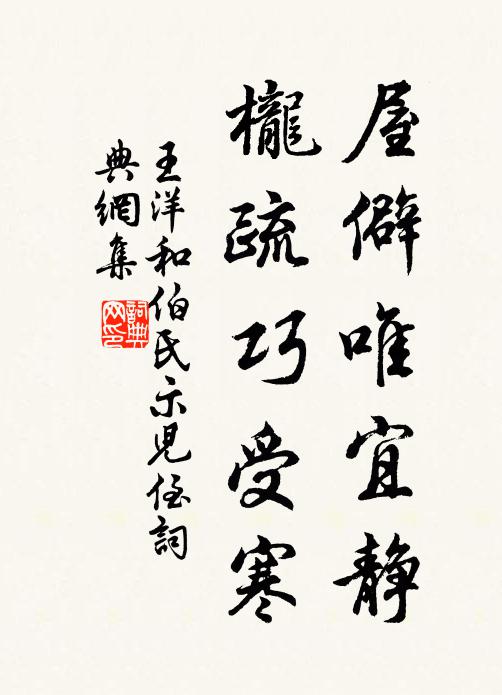 屋僻唯宜靜
櫳疏巧受寒
王洋和伯氏示兒侄詞
典網集
詞典
网印